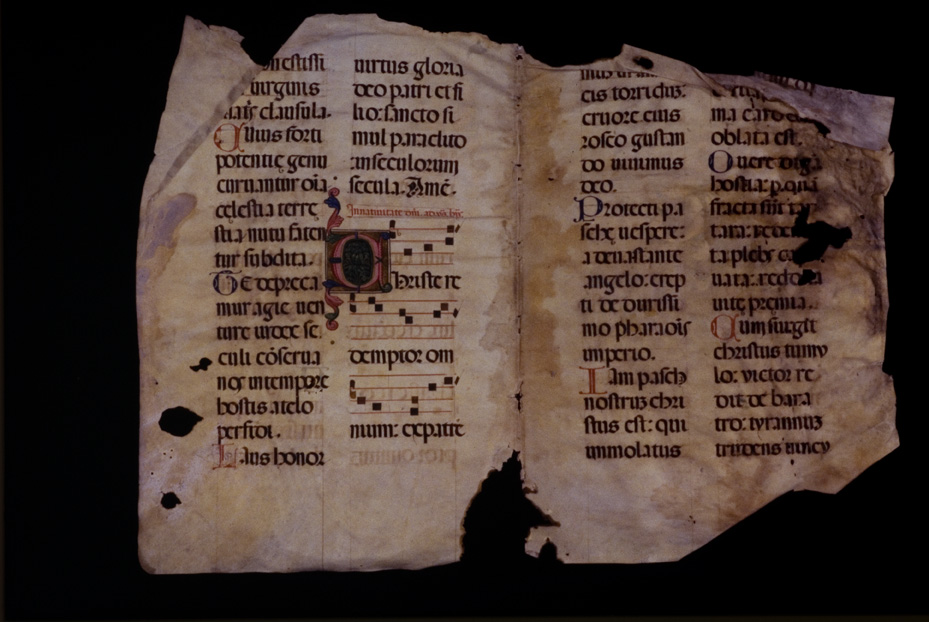 virginis
clausula.
Cuius forti
potentię genu
curvantur oĩa
cęlestia terre
stia nutu faten
tur subdita.
Te depreca
mur agie uen
ture iudex se
culi cõserua
nos in tempore
hostis a telo
perfidi.
Laus honor
uirtus gloria
deo patri et fi
lio: sancto si
mul paraclito
in seculorum
secula. Amẽ.
Christe re
demptor om
nium: ex patre
cis torridum:
cruore eius
roseo gustan
do uiuimus
deo.
Protecti pa
sche uespere:
a deuastante
angelo: erep
ti de durissi
mo pharaõis
imperio.
Iam pascha
nostrum chri
stus est: qui
immolatus
oblata est.
O uere digna
hostia: p quã
fracta sũt tar
tara: redempta
plebs
uata: reddita
uite premia.
Cum surgit
christus tumu
lo: uictor re
dit de bara
tro: tyrannum
trudens uinculo